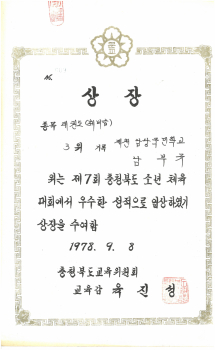 상장
종목 태권도
3위
제천 남당국민학교
위는 제7회 충청북도 소년 체육
대회에서 우수한 성적으로 입상하였기
상장을 수여함
1978. 9. 8
충청북도교육위원회
교육감 육진성